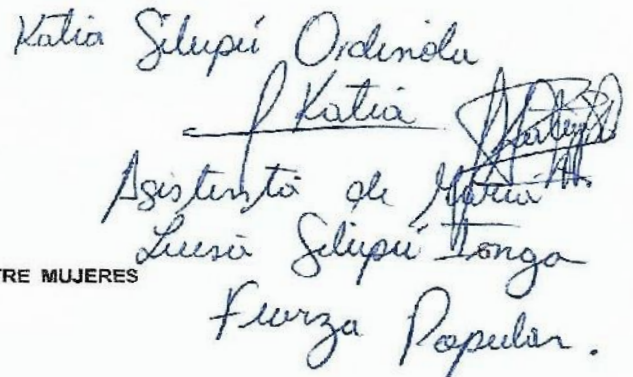 Katia Silupú Ordinola
Katia
Asistenta de María
Luisa Silupú Tonga
TRE MUJERES
Fuerza Popular.